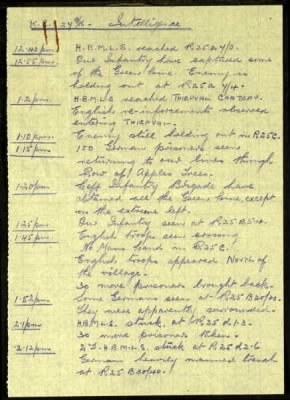 Intelligence
12.40 pm H.B.M.L.S. reached R25a 4/0.
12.55 pm Our Infantry have captured some
of the Green Line. Enemy is
holding out at R25a 4/4.
H.B.M.L.S. reached THIEPVAL CHATEAU.
English re-inforcements observed
entering THIEPVAL.
1.10 pm Enemy still holding out in R25C.
1.15 pm 150 German prisoners seen
returning to our lines through
Row of Apple Trees.
1.20 pm Left Infantry Brigade have
obtained all the Green Line, except
on the extreme left.
1.25 pm Our Infantry seen at R25B5/4.
1.45 pm English troops seen crossing
No Mans Land in R25C.
English troops appeared North of
the village.
30 more prisoners brought back.
1.52 pm Some Germans seen at R25B20/00.
They were apparently surrounded.
2.1 pm H.B.M.L.S. stuck at R25d1.3.
30 more prisoners taken.
2.12 pm 2nd H.B.M.L.S. stuck at R25d2.6
German heavily manned trench
at R25B30/40.